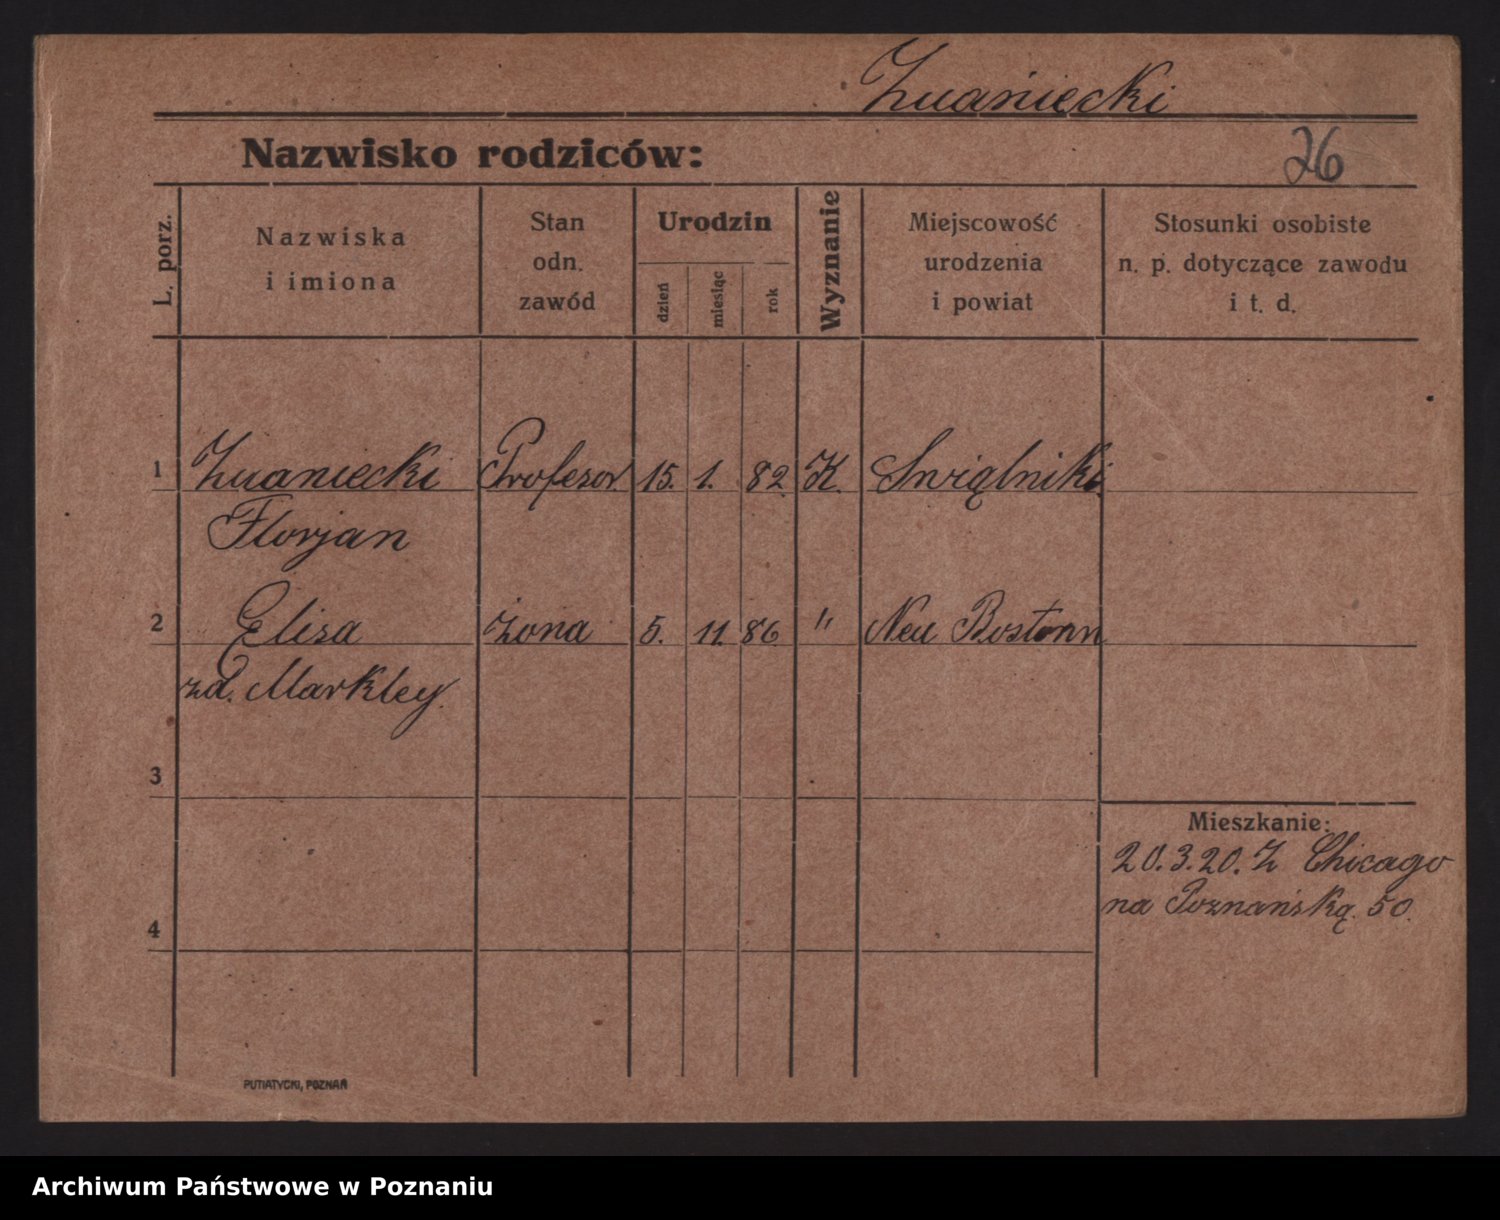 Znaniecki
26
Nazwisko rodziców:
L. porz.
Nazwiska
i imiona
Stan
odn.
zawód
Urodzin
dzień
miesiąc
rok
Wyznanie
Miejscowość
urodzenia
i powiat
Stosunki osobiste
n. p. dotyczące zawodu
i t. d.
1 Znaniecki Profesor. 15. 1. 82. K. Swiątniki.
Florjan
2 Eliza żona 5. 11. 86. " Neu Bostonn
zd. Markley.
3
Mieszkanie:
20.3.20. Z Chicago
na Poznańską. 50.
4
PUTIATYCKI, POZNAŃ
Archiwum Państwowe w Poznaniu